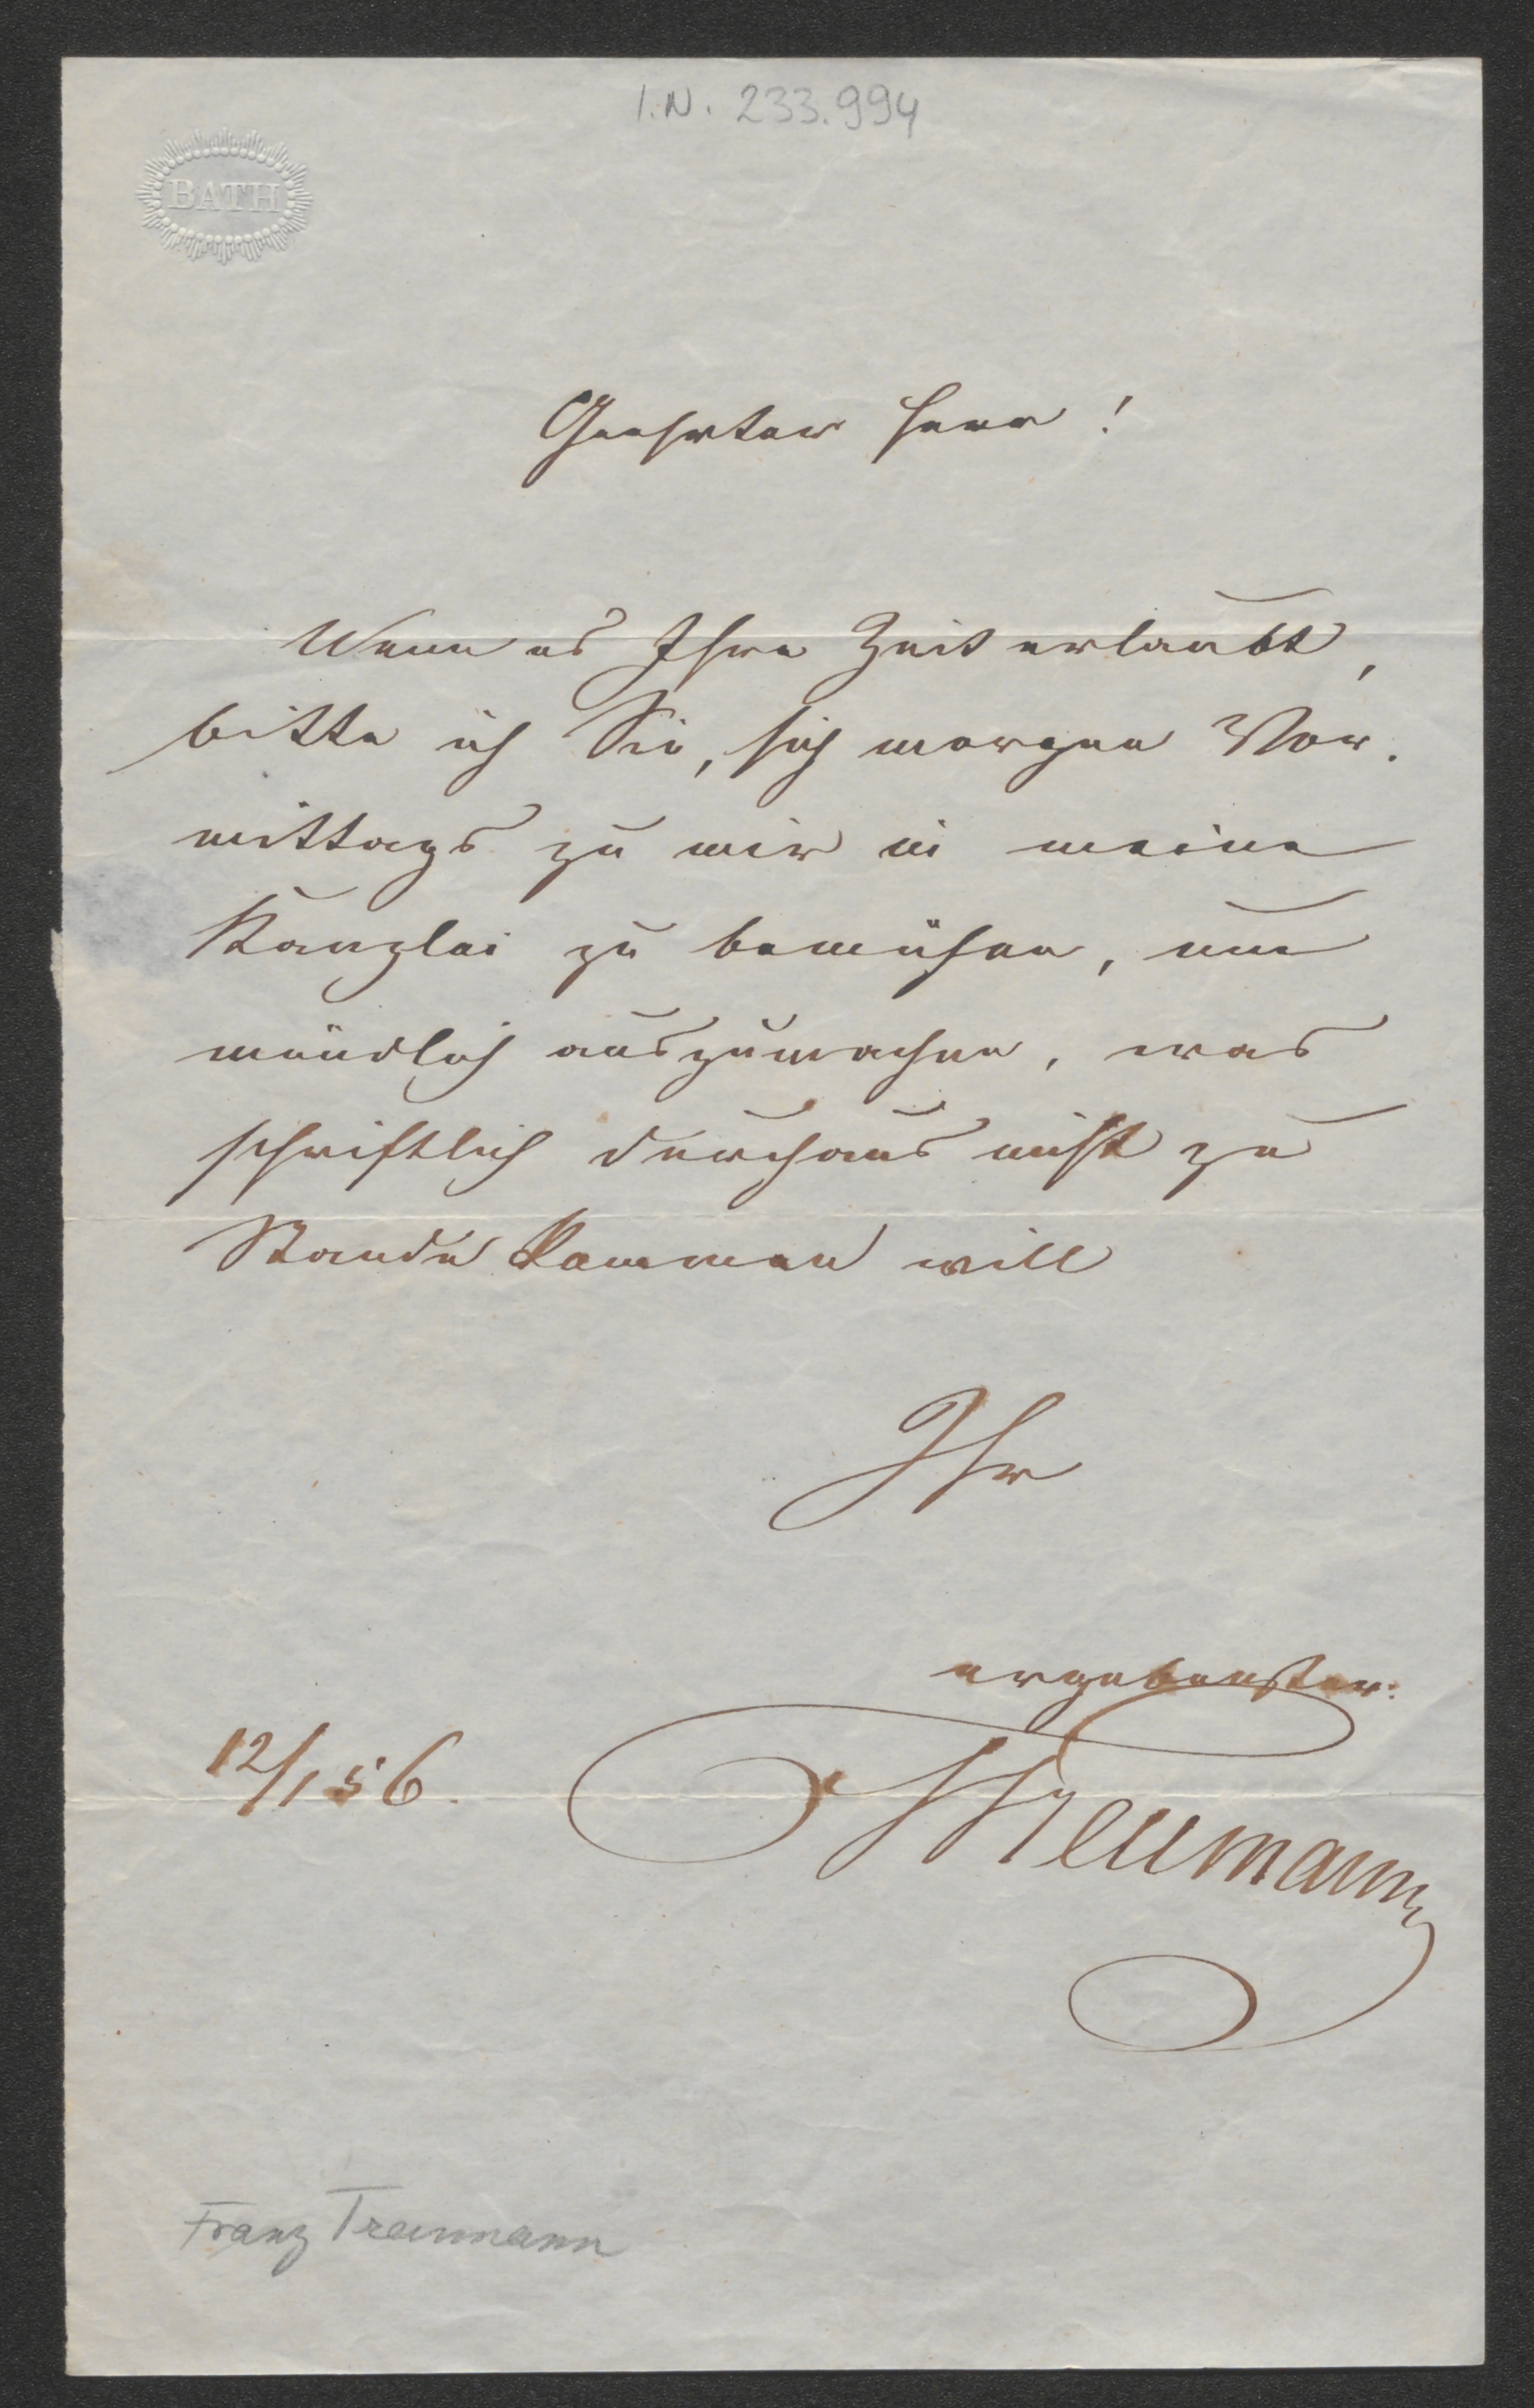 I.N. 233.994
BATH
Geehrter Herr!
Wenn es Ihre Zeit erlaubt,
bitte ich Sie, sich morgen Vor.
mittags zu mir in meine
Kanzlei zu bemühen, um
mündlich auszumachen, was
schriftlich durchaus nicht zu
Stande kommen will
Ihr
ergebenster.
12/1 56.
Treumann
Franz Treumann